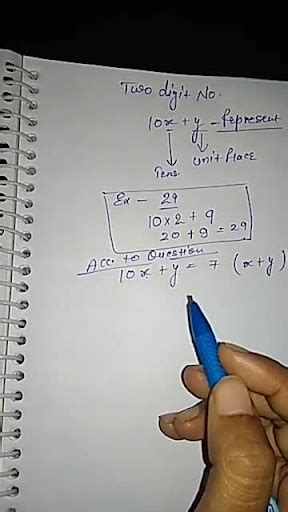 Two digit No.
10x + y - Represent
Tens
Unit Place
Ex - 29
10 x 2 + 9
20 + 9 = 29
Acc. to Question
10x + y = 7 (x+y)